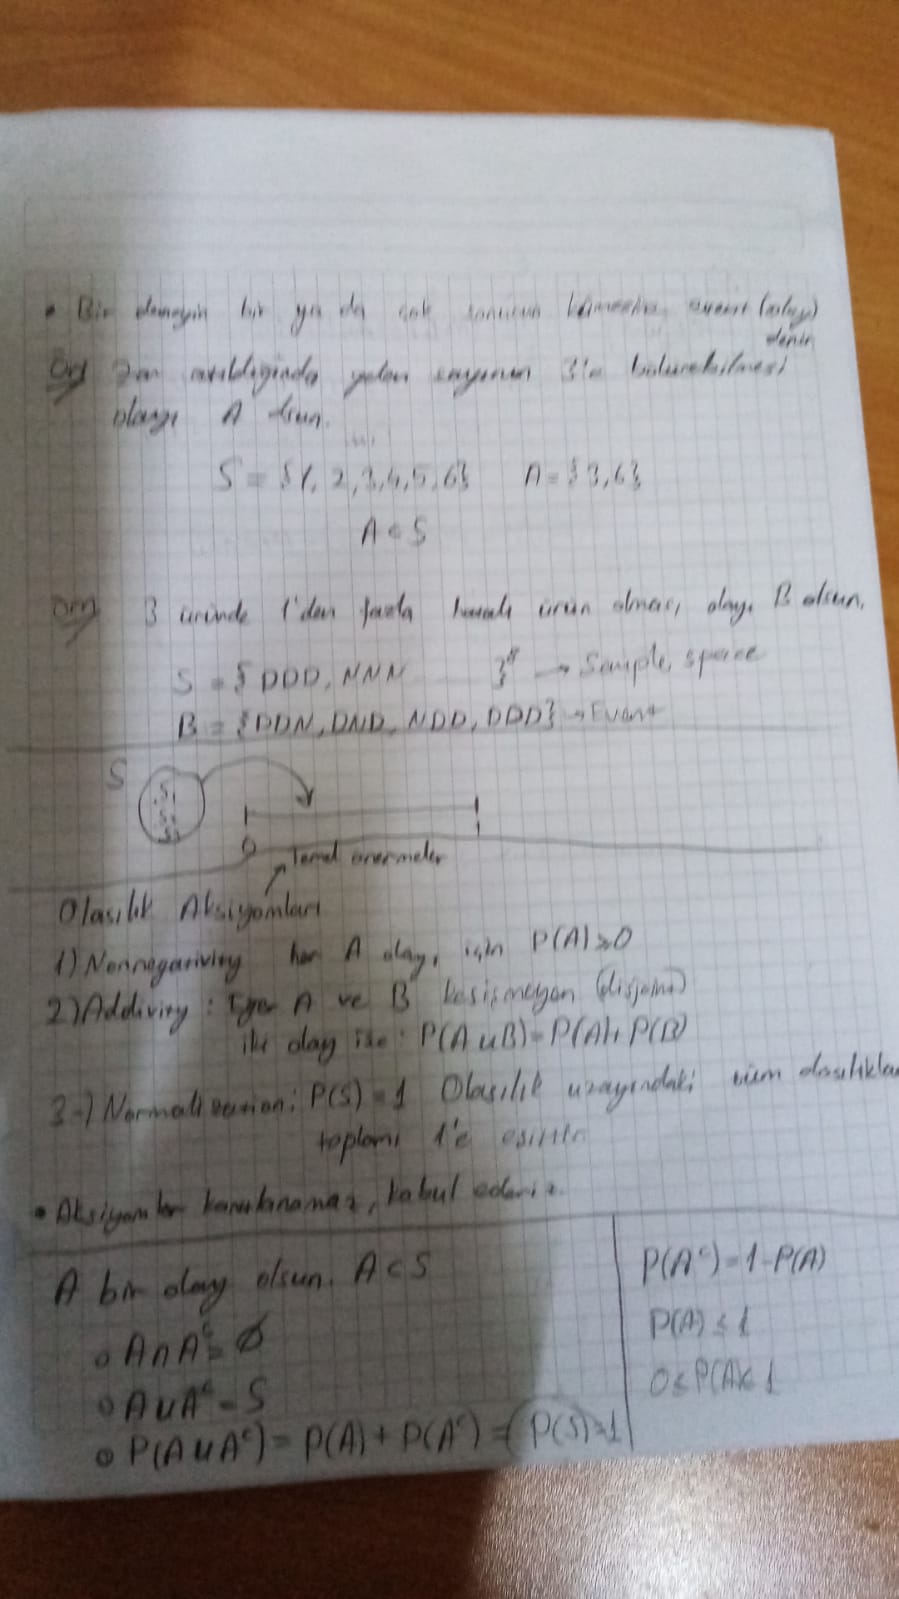 • Bir deneyin bir ya da çok sonucun kümesine event (olay)
denir
Örn Zar atıldığında gelen sayının 3'e bölünebilmesi
olayı A olsun.
S = {1, 2, 3, 4, 5, 6} A = {3, 6}
A ⊂ S
Örn 3 üründe 1'den fazla hatalı ürün olması olayı B olsun.
S = {DDD, NNN }⁸ → Sample space
B = {DDN, DND, NDD, DDD} → Event
S
0 1
Temel önermeler
Olasılık Aksiyomları
1) Nonnegativity her A olayı için P(A) ≥ 0
2) Additivity : Eğer A ve B kesişmeyen (disjoint)
iki olay ise : P(A ∪ B) = P(A) + P(B)
3-) Normalization: P(S) = 1 Olasılık uzayındaki tüm olasılıkla
toplamı 1'e eşittir
• Aksiyomlar kanıtlanamaz, kabul ederiz.
A bir olay olsun. A ⊂ S
o A ∩ Aᶜ = ∅
o A ∪ Aᶜ = S
o P(A ∪ Aᶜ) = P(A) + P(Aᶜ) = P(S) = 1
P(Aᶜ) = 1 - P(A)
P(A) ≤ 1
0 ≤ P(A) ≤ 1